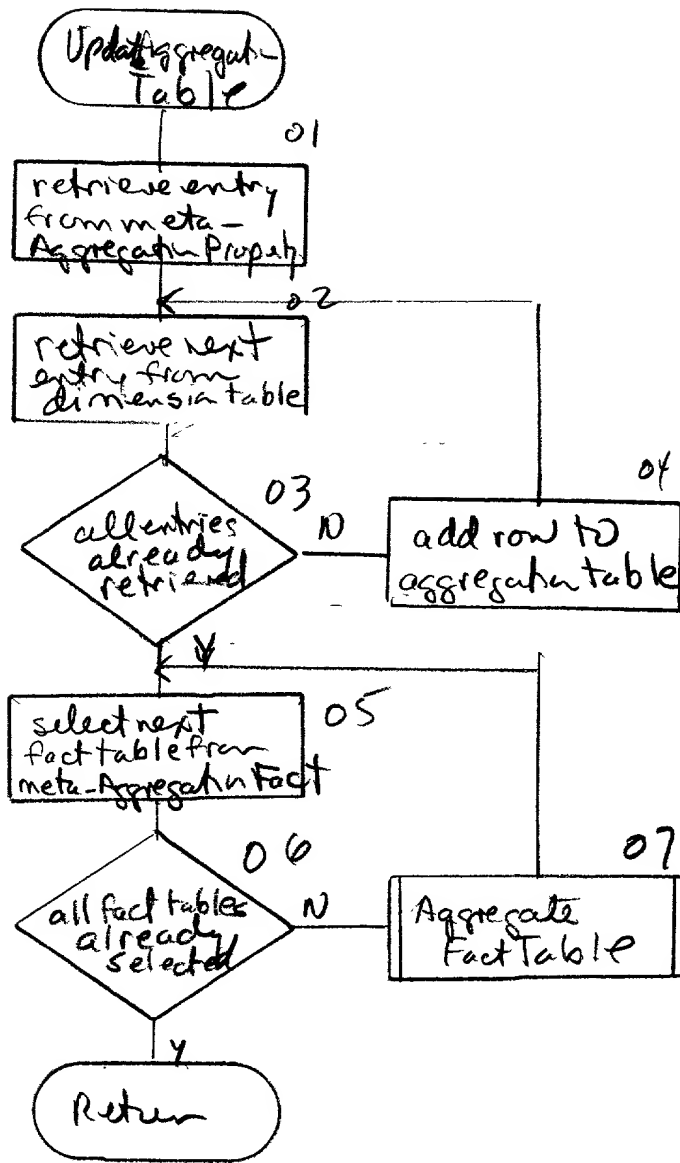 Update Aggregation
Table
01
retrieve entry
from meta-
Aggregation Property
02
retrieve next
entry from
dimension table
03
all entries
already
retrieved
N
04
add row to
aggregation table
Y
select next
fact table from
meta-Aggregation Fact
05
06
all fact tables
already
selected
N
07
Aggregate
Fact Table
Y
Return